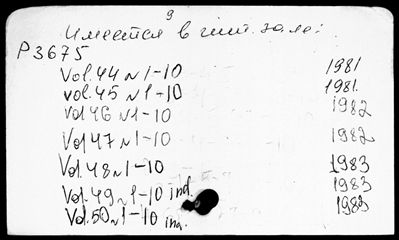 9
Имеется в чит. зале:
P3675
Vol.44 N1-10 1981
Vol.45 N1-10 1981.
Vol 46 N1-10 1982
Vol 47 N1-10 1982
Vol.48 N1-10 1983
Vol.49 N1-10 ind. 1983
Vol.50 N1-10 ind. 1983